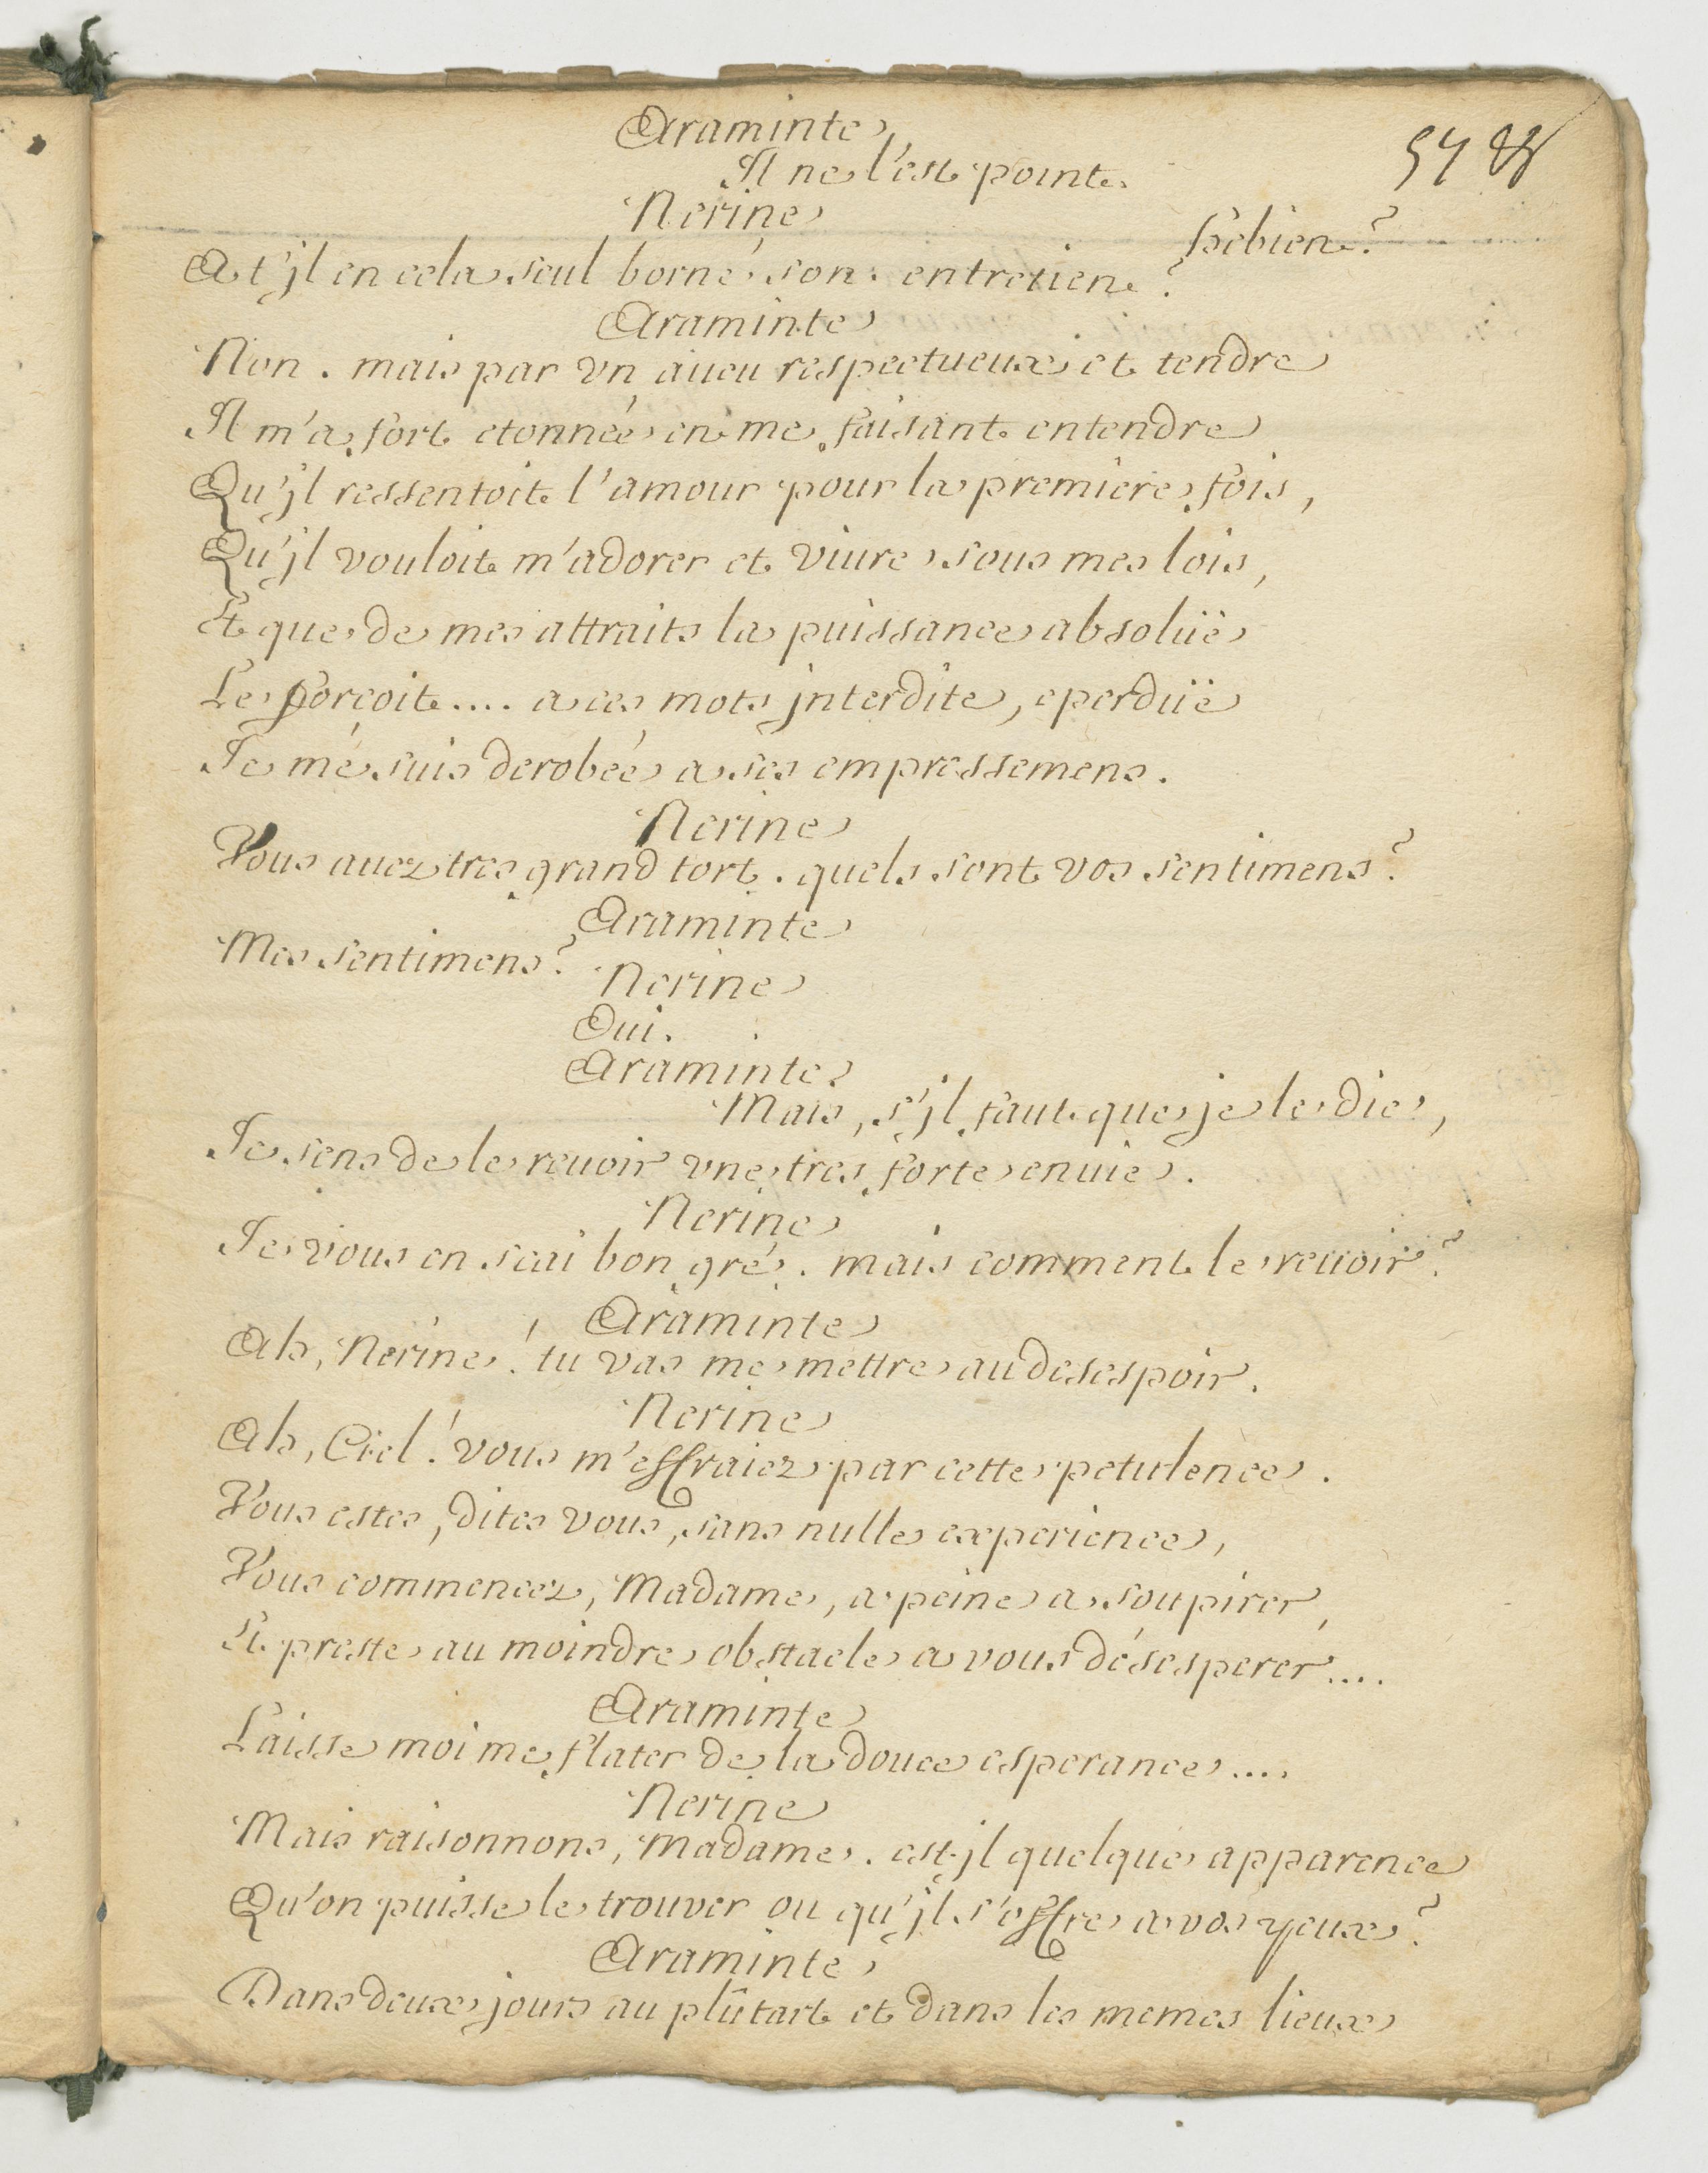 Araminte
Il ne l'est point.
Nerine
hebien?
A t'jl en cela seul borné son entretien?
Araminte
Non. mais par vn aueu respectueux et tendre
Il m'a fort etonnée en me faisant entendre
Qu'jl ressentoit l'amour pour la premiere fois,
Qu'jl vouloit m'adorer et viure sous mes lois,
Et que de mes attraits la puissance absolüe
Le forçoit.... a ces mots jnterdite, eperdüe
Je me suis derobée a ses empressemens.
Nerine
Vous auez tres grand tort. quels sont vos sentimens?
Araminte
Mes sentimens?
Nerine
Oui.
Araminte
Mais, s'jl faut que je le die,
Je sens de le reuoir vne tres forte enuie.
Nerine
Je vous en scai bon gré. mais comment le reuoir?
Araminte
Ah, Nerine! tu vas me mettre au desespoir.
Nerine
Ah, Ciel! vous m'effraiez par cette petulence.
Vous estes, dites vous, sans nulle experience,
Vous commencez, Madame, a peine a soupirer,
Et preste au moindre obstacle a vous désesperer....
Araminte
Laisse moi me flater de la douce esperance....
Nerine
Mais raisonnons, Madame. est-jl quelque apparence
Qu'on puisse le trouver ou qu'jl s'offre a vos yeux?
Araminte
Dans deux jours au plûtart et dans les memes lieux